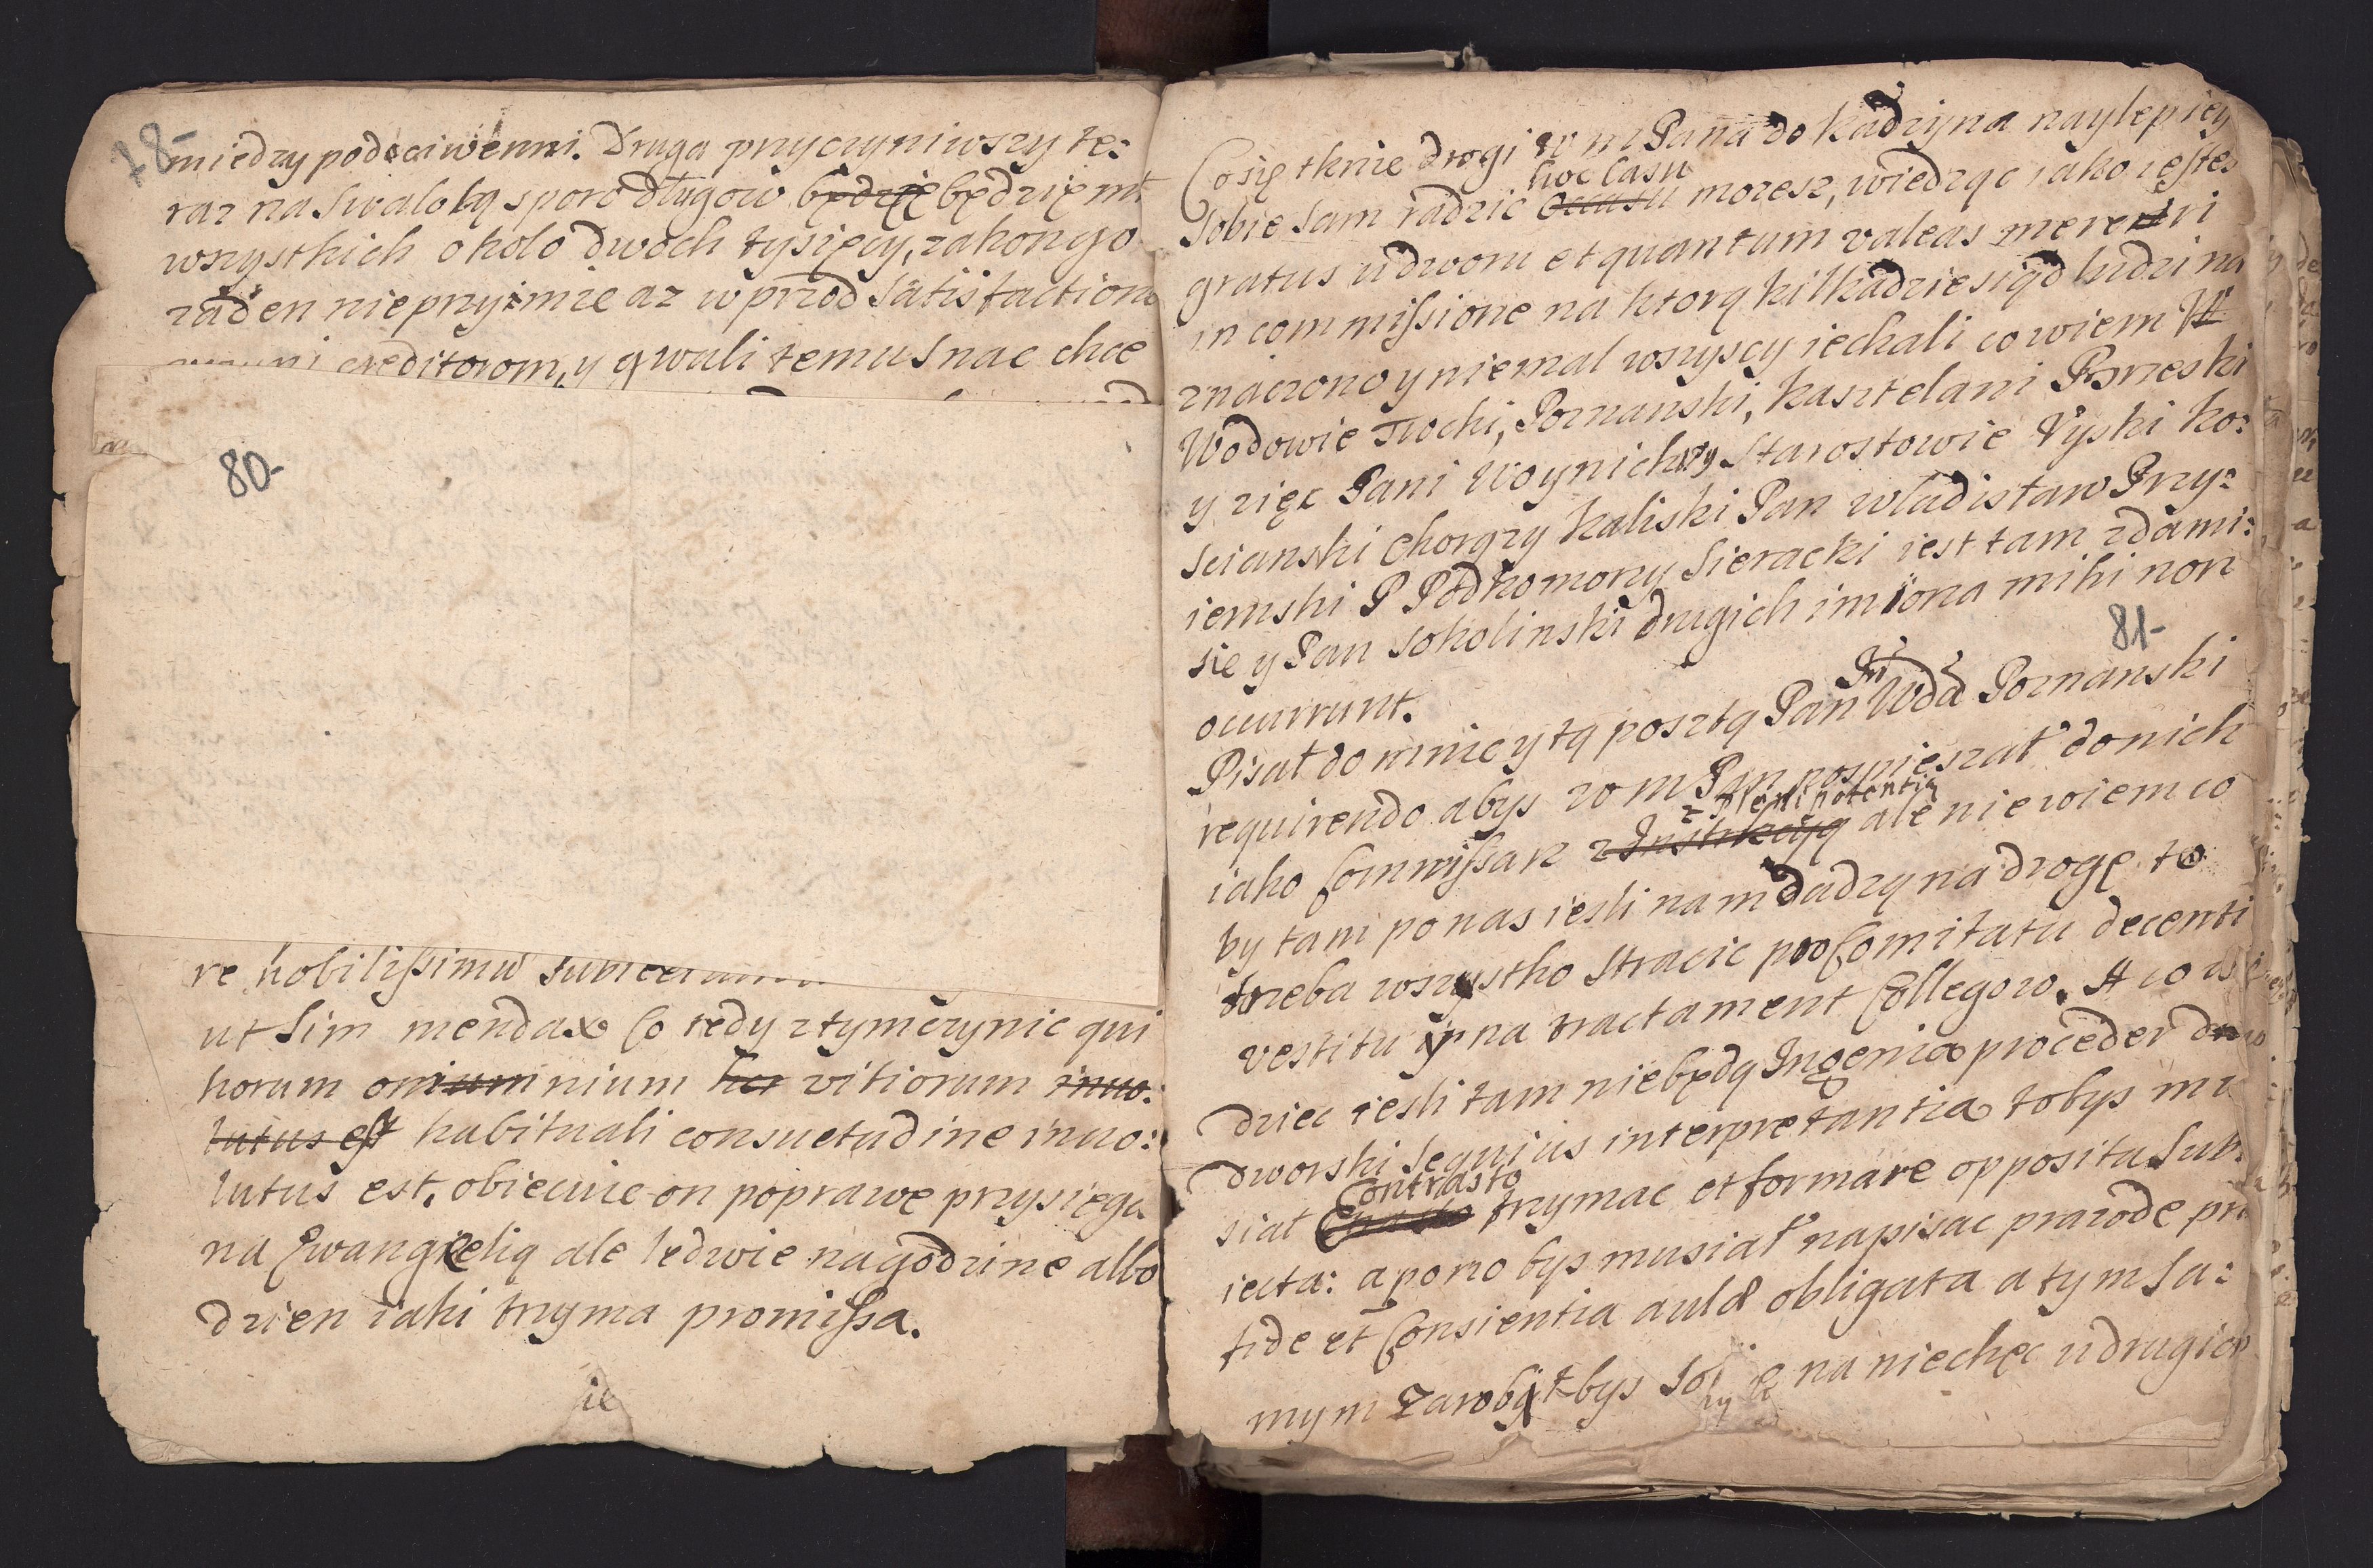 78-
miedzy podeciwemi. Druga przyczyniwszy te:
raz na swalobą sporo długow będzię będzię mi
wszystkich okolo dwoch tysięcy, zakonego
zaden nieprzyimie az wprzod satisfaction
creditorom, y gwali temu snac chce
80-
re nobilissimu
ut sim mendax Co tedy ztym czynic qui
horum omnium nium har vitiorum inuo:
lutus est habituali consuetudine inuo:
lutus est, obiecuie on poprawę przysięga
na Ewangielią ale ledwie na godzine albo
dzien iaki trzyma promissa.
ie
Co się tknie drogi w m Pana do Kadzyna naylepiey
hoc casu
sobie sam radzic occasu mozesz, wiedząc iako iestes
gratus u dworu et quantum valeas mereri
in commissione na ktorą kilkadziesiąd ludzi na
znaczono y niemal wszyscy iechali co wiem W
Wodowie Trocki, Poznanski, Kasztelani Brzeski
y zięc Pani Woynicki y Starostowie Ryski Ko:
scianski Chorązy Kaliski Pan Wladislaw Przy:
iemski P Podkomorzy Sieracki iest tam zdami:
sie y Pan Sokolinski drugich imiona mihi non
81-
occurrunt.
Pisał do mnie y tą posztą Pan Wda Poznanski
requirendo abys w m Pan pospieszał do nich
z plenipotentią
iako Commissarz z Instrkcyą ale niewiem co
by tam po nas iesli nam dadzą na drogę to
trzeba wszystko stracic pro Comitatu decenti
vestitu y na tractament Collegow. A co w
dziec iesli tam niebędą Ingenia proceder dwo
dworski sequius interpretantia tobys mu
Contrasto
siał trzymac et formare opposita sub
iecta: a poro bys musiał napisac prawdę pri
fide et Consientia aulæ obligata a tym sa:
mym zarobiłbys so na niechęc u drugich